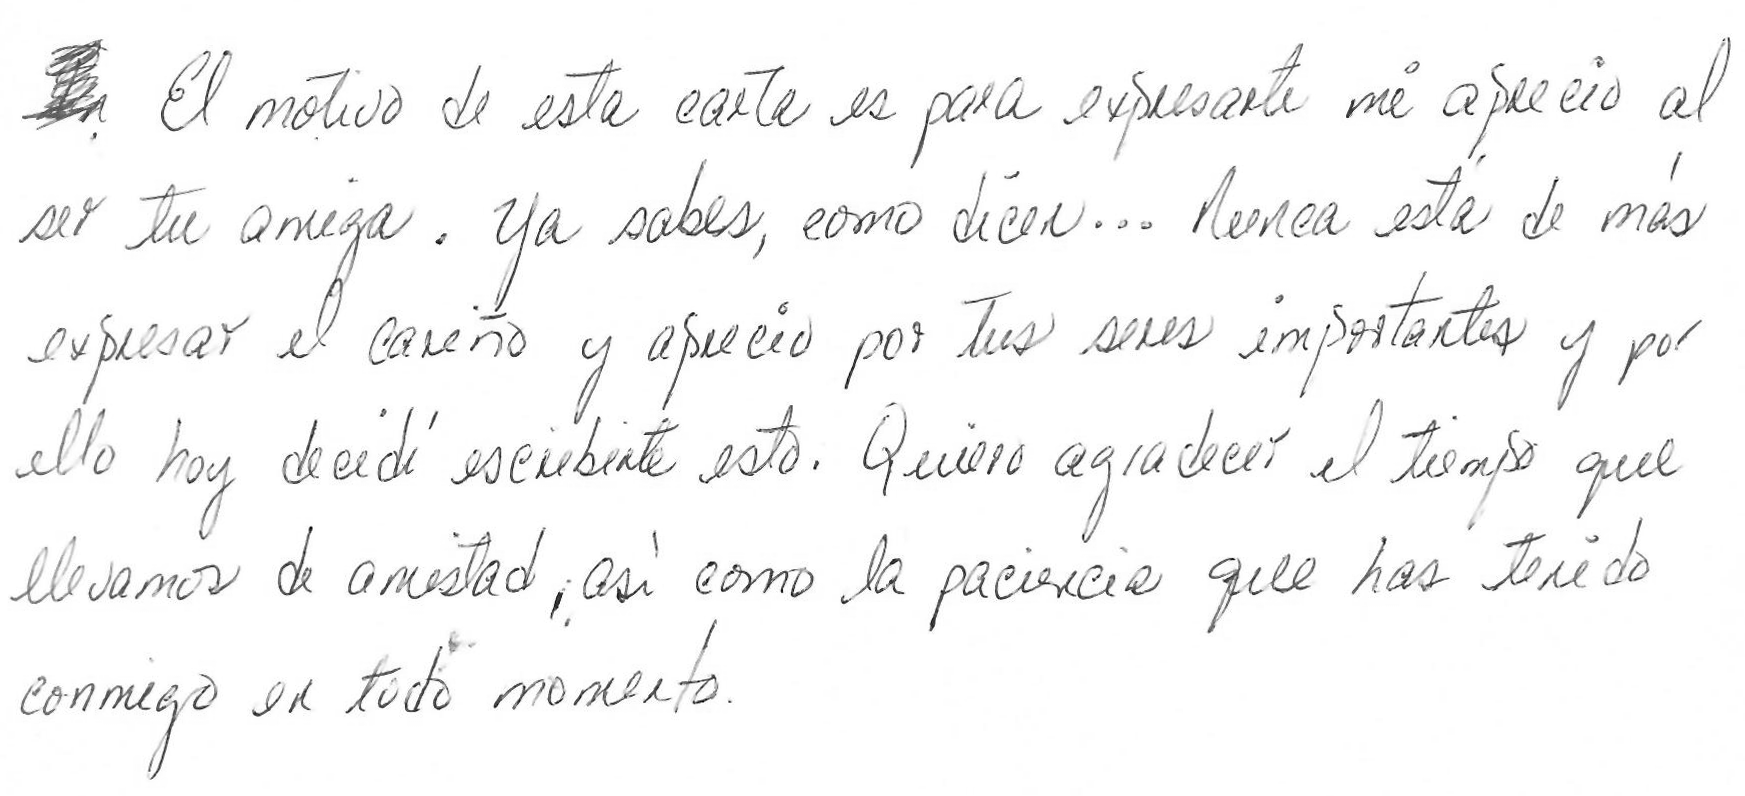 El motivo de esta carta es para expresarte mi aprecio al
ser tu amiga. Ya sabes, como dicen... Nunca está de más
expresar el cariño y aprecio por tus seres importantes y por
ello hoy decidí escribirte esto. Quiero agradecer el tiempo que
llevamos de amistad, así como la paciencia que has tenido
conmigo en todo momento.